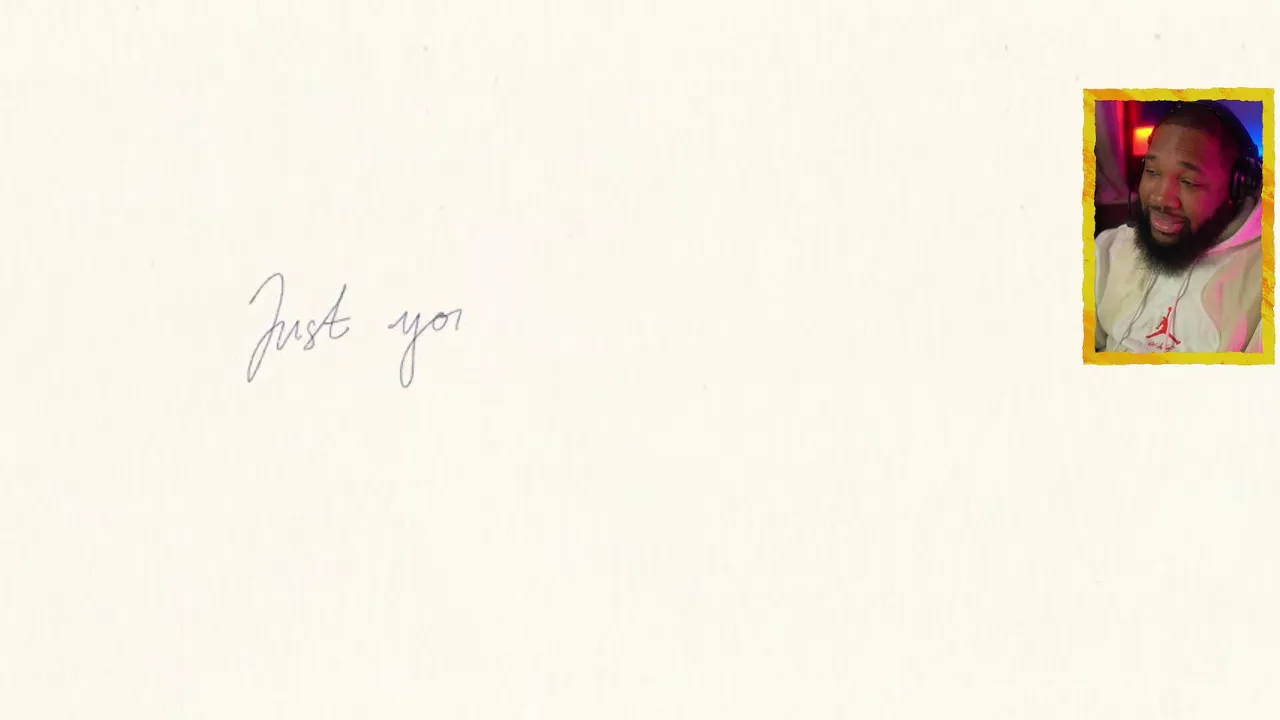 Just yo